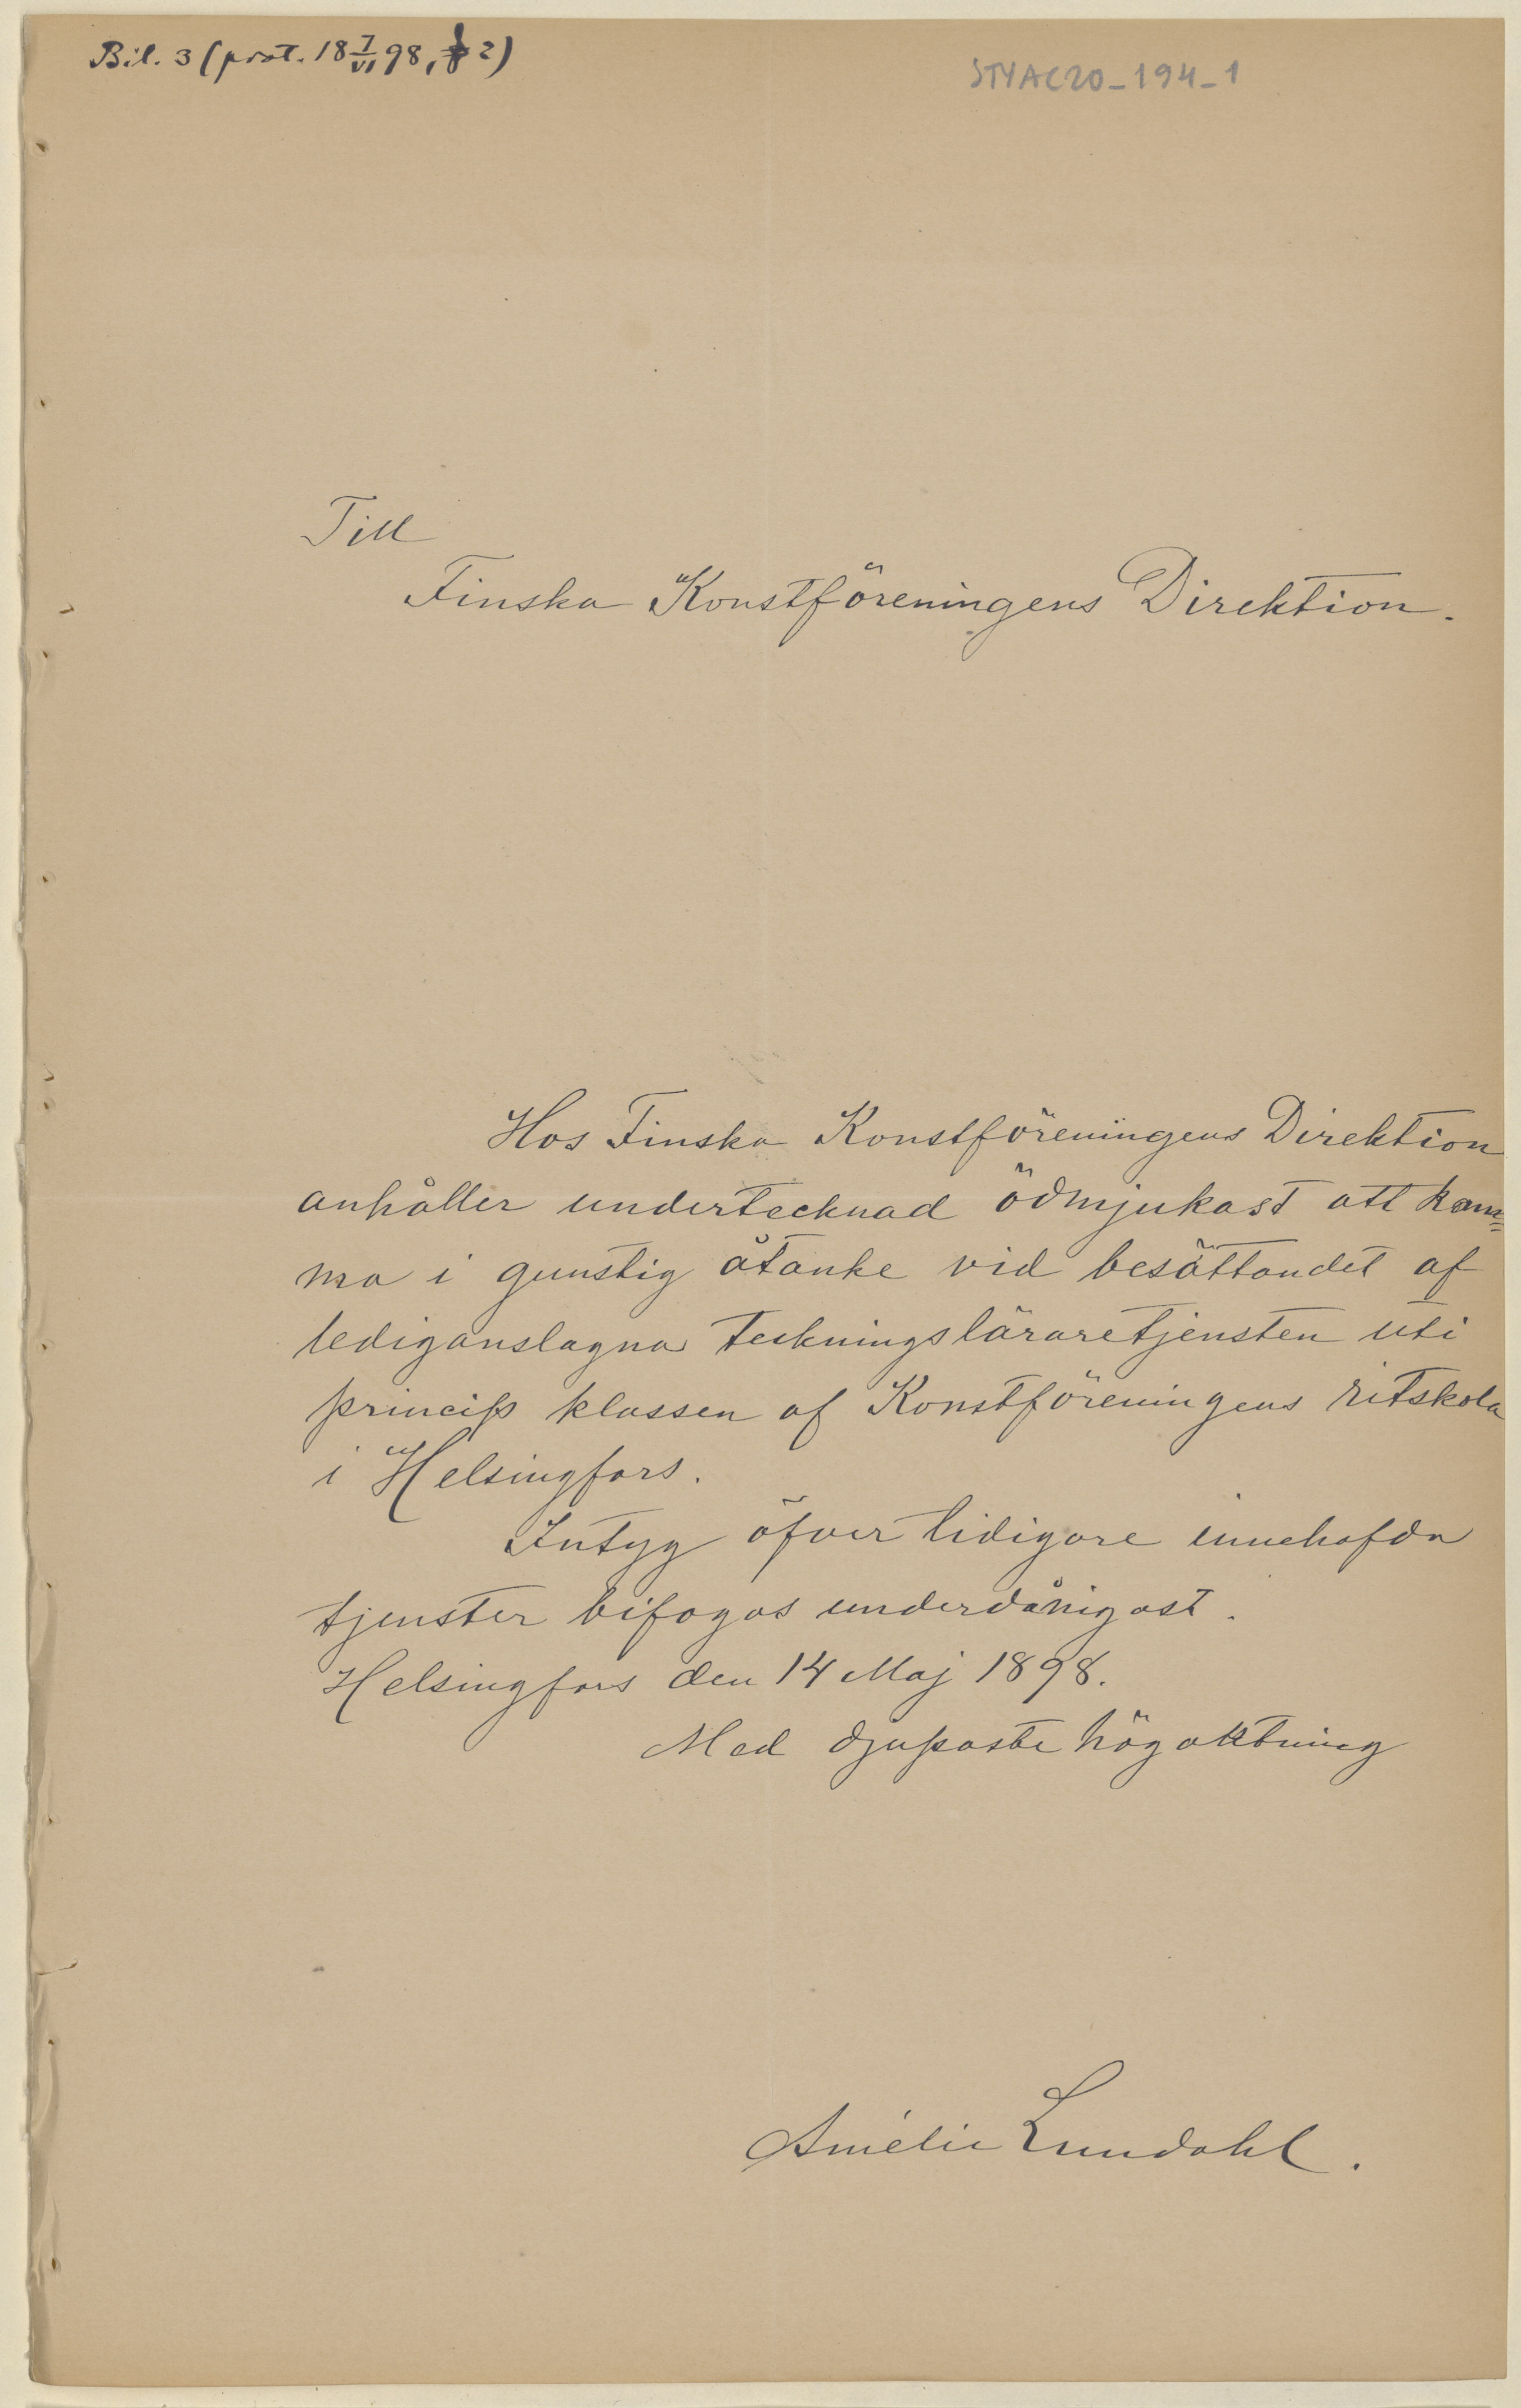 Bil. 3 (prot. 18 7/VI 98, § 2)
STYAC20_194_1
Till
Finska Konstföreningens Direktion.
Hos Finska Konstföreningens Direktion
anhåller undertecknad ödmjukast att kom=
ma i gunstig åtanke vid besättandet af
lediganslagna teckningsläraretjensten uti
princip klassen af Konstföreningens ritskola
i Helsingfors.
Intyg öfver tidigare innehafda
tjenster bifogas underdånigast.
Helsingfors den 14 Maj 1898.
Med djupaste högaktning
Amélie Lundahl.